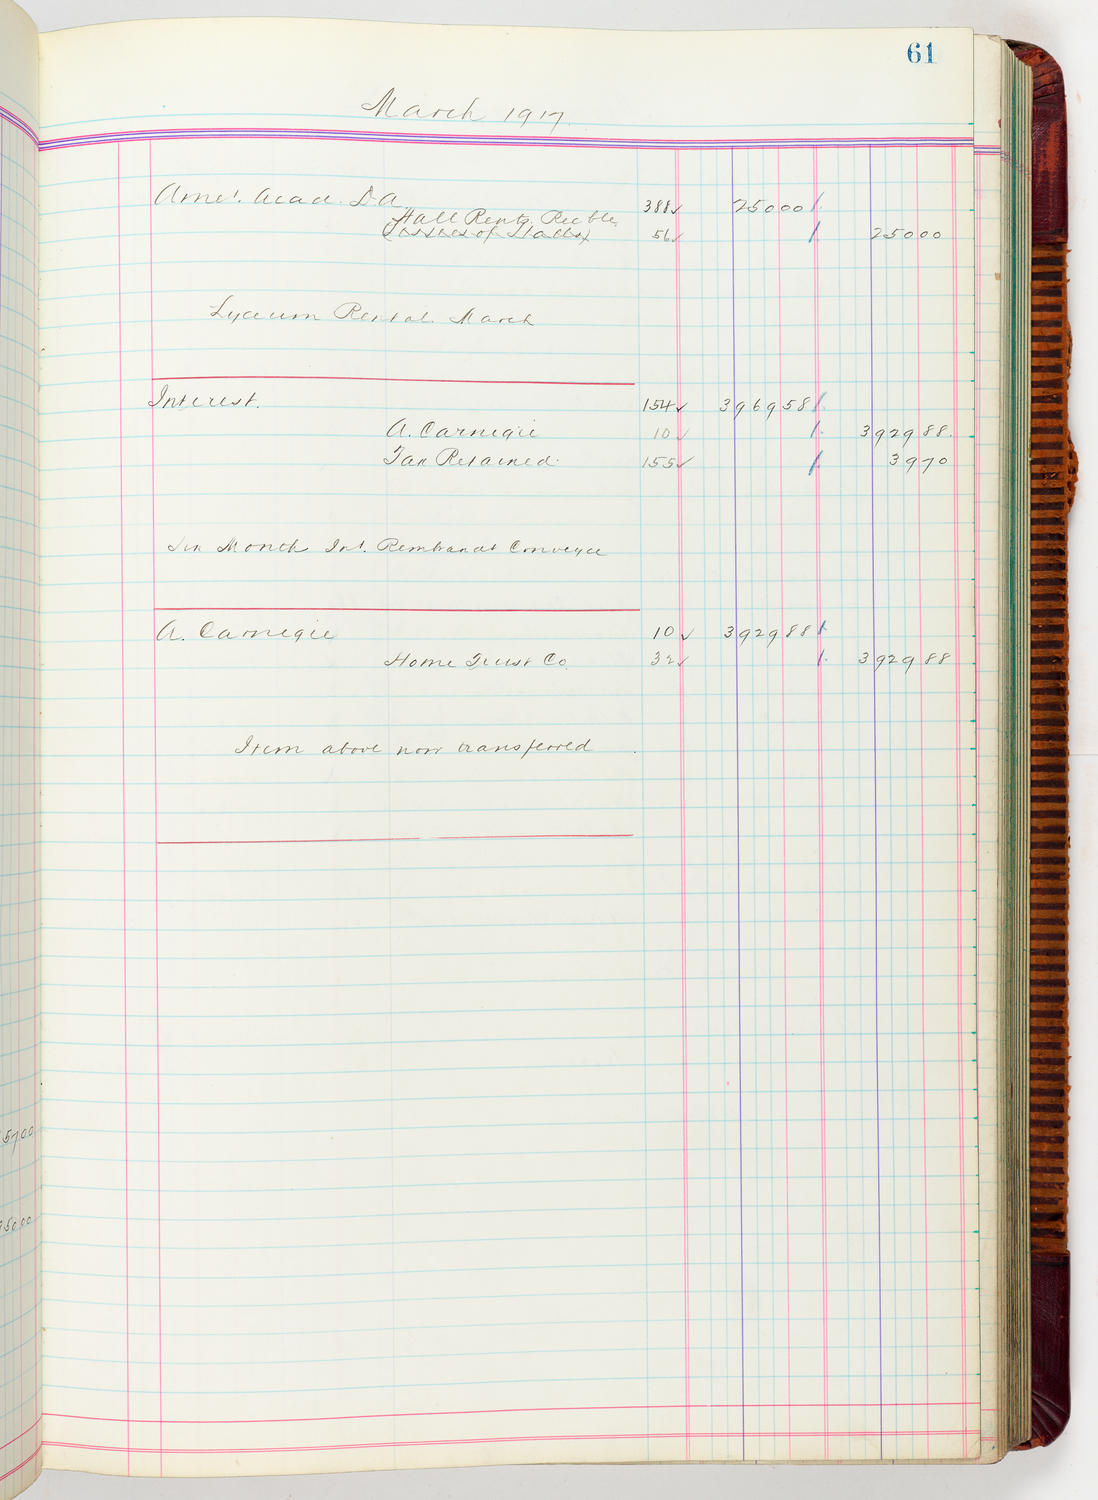 61
March 1917.
Amer. Acad. D. A. 388✓ 250 00
Hall Rents Rec'ble
(Lessees of Halls) 56✓ 250 00
Lyceum Rental March
Interest. 154✓ 3969 58
A. Carnegie 10✓ 3929 88.
Tax Retained. 155✓ 39 70
Six Month Int. Rembrandt Conveyce
A. Carnegie 10✓ 3929 88
Home Trust Co. 32✓ 3929 88
Item above now transferred.
57.00
50.00